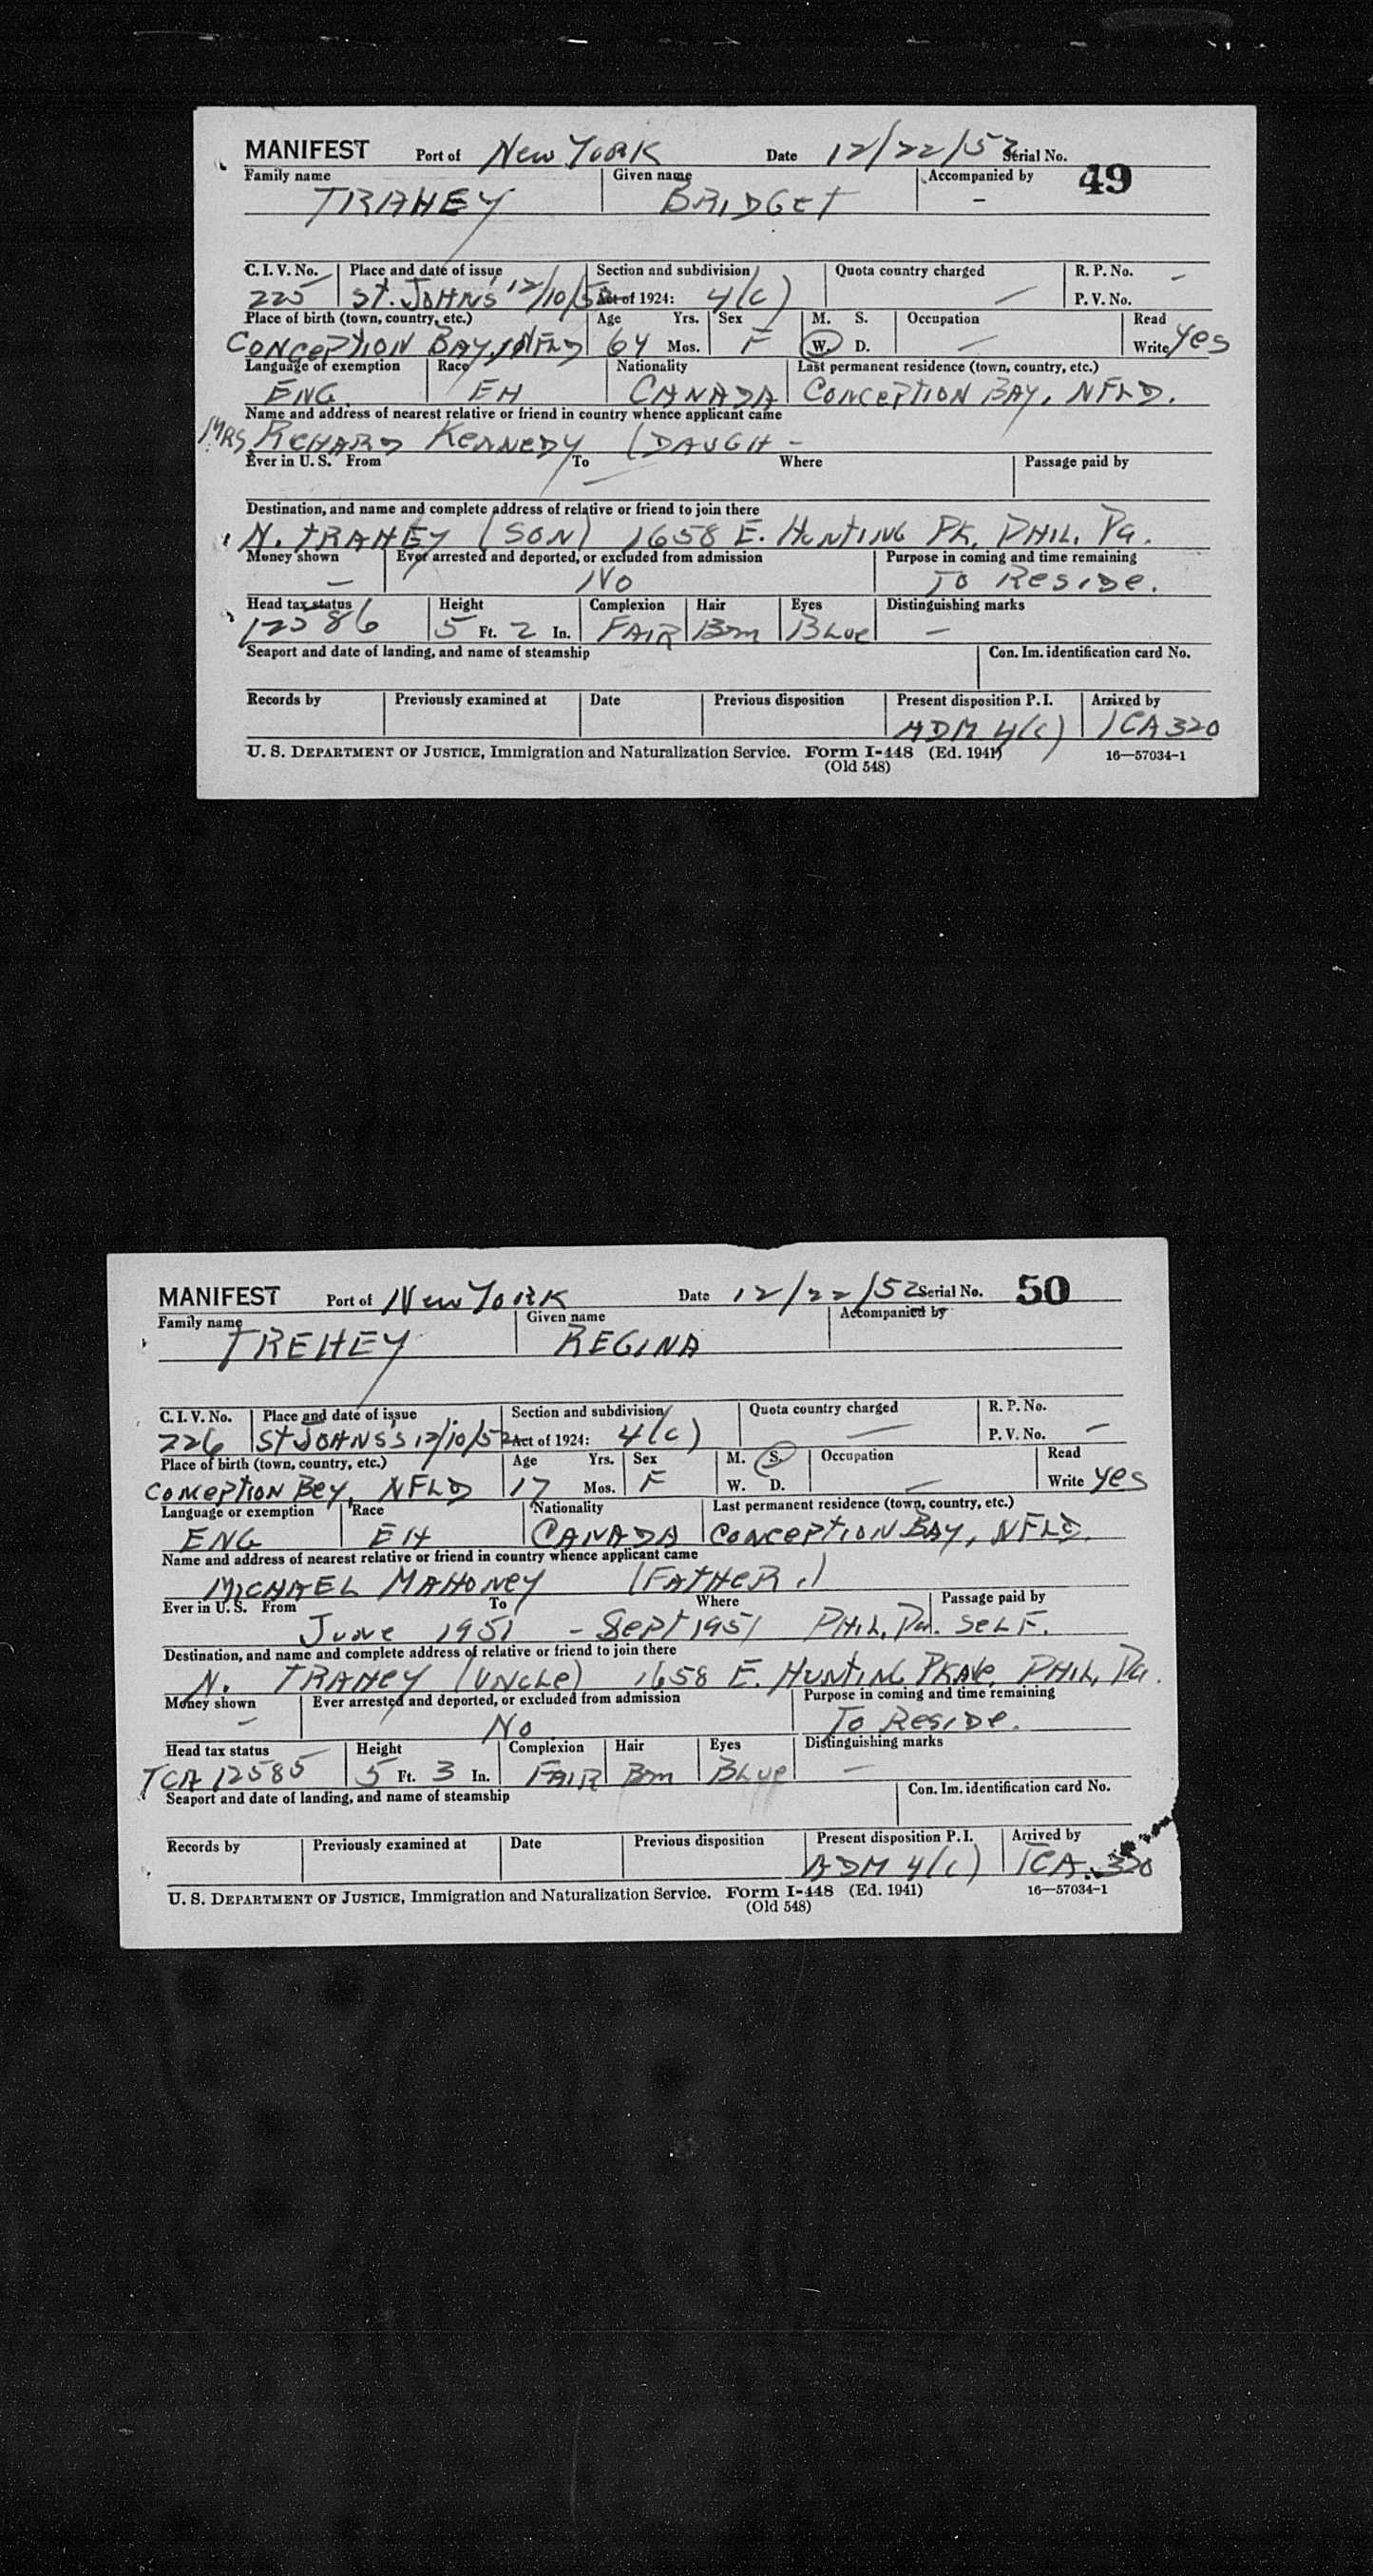 MANIFEST Port of New York Date 12/22/52 Serial No. 49
Family name Given name Accompanied by
TRAHEY BRIDGET -
C. I. V. No. Place and date of issue Section and subdivision Quota country charged R. P. No. -
225 St. John's 12/10/52 Act of 1924: 4(c) — P. V. No.
Place of birth (town, country, etc.) Age Yrs. Sex M. S. Occupation Read
Conception Bay, NFLD 64 Mos. F W. D. — Write yes
Language of exemption Race Nationality Last permanent residence (town, country, etc.)
ENG. EH CANADA Conception Bay, NFLD.
Name and address of nearest relative or friend in country whence applicant came
Mrs. Richard Kennedy (DAUGH -
Ever in U. S. From To Where Passage paid by
—
Destination, and name and complete address of relative or friend to join there
N. TRAHEY (SON) 1658 E. Hunting Pk, Phil. Pa.
Money shown Ever arrested and deported, or excluded from admission Purpose in coming and time remaining
— No To Reside.
Head tax status Height Complexion Hair Eyes Distinguishing marks
12586 5 Ft. 2 In. FAIR Brn Blue —
Seaport and date of landing, and name of steamship Con. Im. identification card No.
Records by Previously examined at Date Previous disposition Present disposition P. I. Arrived by
ADM 4(c) TCA 320
U. S. DEPARTMENT OF JUSTICE, Immigration and Naturalization Service. Form I-448 (Ed. 1941) 16—57034-1
(Old 548)
MANIFEST Port of New York Date 12/22/52 Serial No. 50
Family name Given name Accompanied by
TREHEY REGINA
C. I. V. No. Place and date of issue Section and subdivision Quota country charged R. P. No.
226 St John's's 12/10/52 Act of 1924: 4(c) — P. V. No. —
Place of birth (town, country, etc.) Age Yrs. Sex M. S. Occupation Read
Conception Bey, NFLD 17 Mos. F W. D. — Write yes
Language or exemption Race Nationality Last permanent residence (town, country, etc.)
ENG EH CANADA Conception Bay, NFLD.
Name and address of nearest relative or friend in country whence applicant came
MICHAEL MAHONEY (FATHER.)
Ever in U. S. From To Where Passage paid by
June 1951 - Sept 1951 Phil, Pa. Self.
Destination, and name and complete address of relative or friend to join there
N. TRAHEY (Uncle) 1658 E. Hunting PkAve, Phil, Pa.
Money shown Ever arrested and deported, or excluded from admission Purpose in coming and time remaining
— No To Reside.
Head tax status Height Complexion Hair Eyes Distinguishing marks
TCA 12585 5 Ft. 3 In. FAIR Brn Blue —
Seaport and date of landing, and name of steamship Con. Im. identification card No.
Records by Previously examined at Date Previous disposition Present disposition P. I. Arrived by
ADM 4(c) TCA 320
U. S. DEPARTMENT OF JUSTICE, Immigration and Naturalization Service. Form I-448 (Ed. 1941) 16—57034-1
(Old 548)